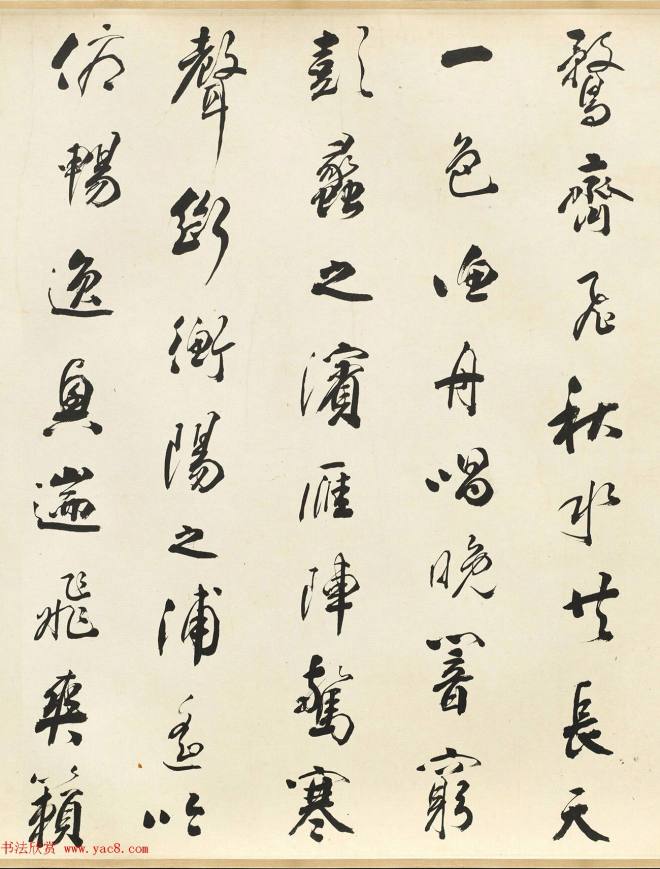 鶩齊飛秋水共長天
一色漁舟唱晚響窮
彭蠡之濱雁陣驚寒
聲斷衡陽之浦遙吟
俯暢逸興遄飛爽籟
书法欣赏 www.yac8.com